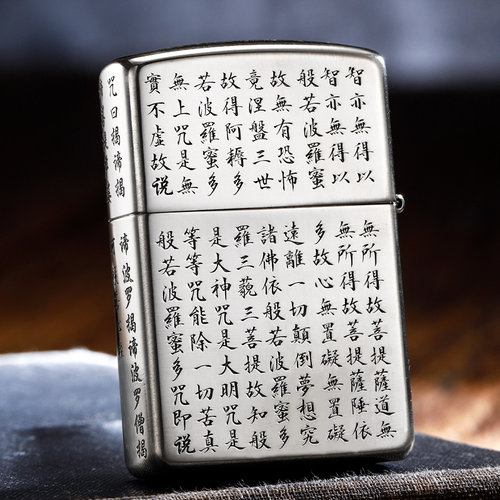 智亦無得以
智亦無得以
般若波羅蜜
故無有恐怖
竟涅盤三世
故得阿耨多
若波羅蜜多
無上咒是無
實不虛故説
咒曰揭諦揭
無所得故菩提薩道無
無所得故菩提薩睡依
多故心無置礙無置礙
遠離一切顛倒夢想究
諸佛依般若波羅蜜多
羅三藐三菩提故知般
是大神咒是大明咒是
等等咒能除一切苦真
般若波羅蜜多咒即説
諦波罗揭諦波罗僧揭